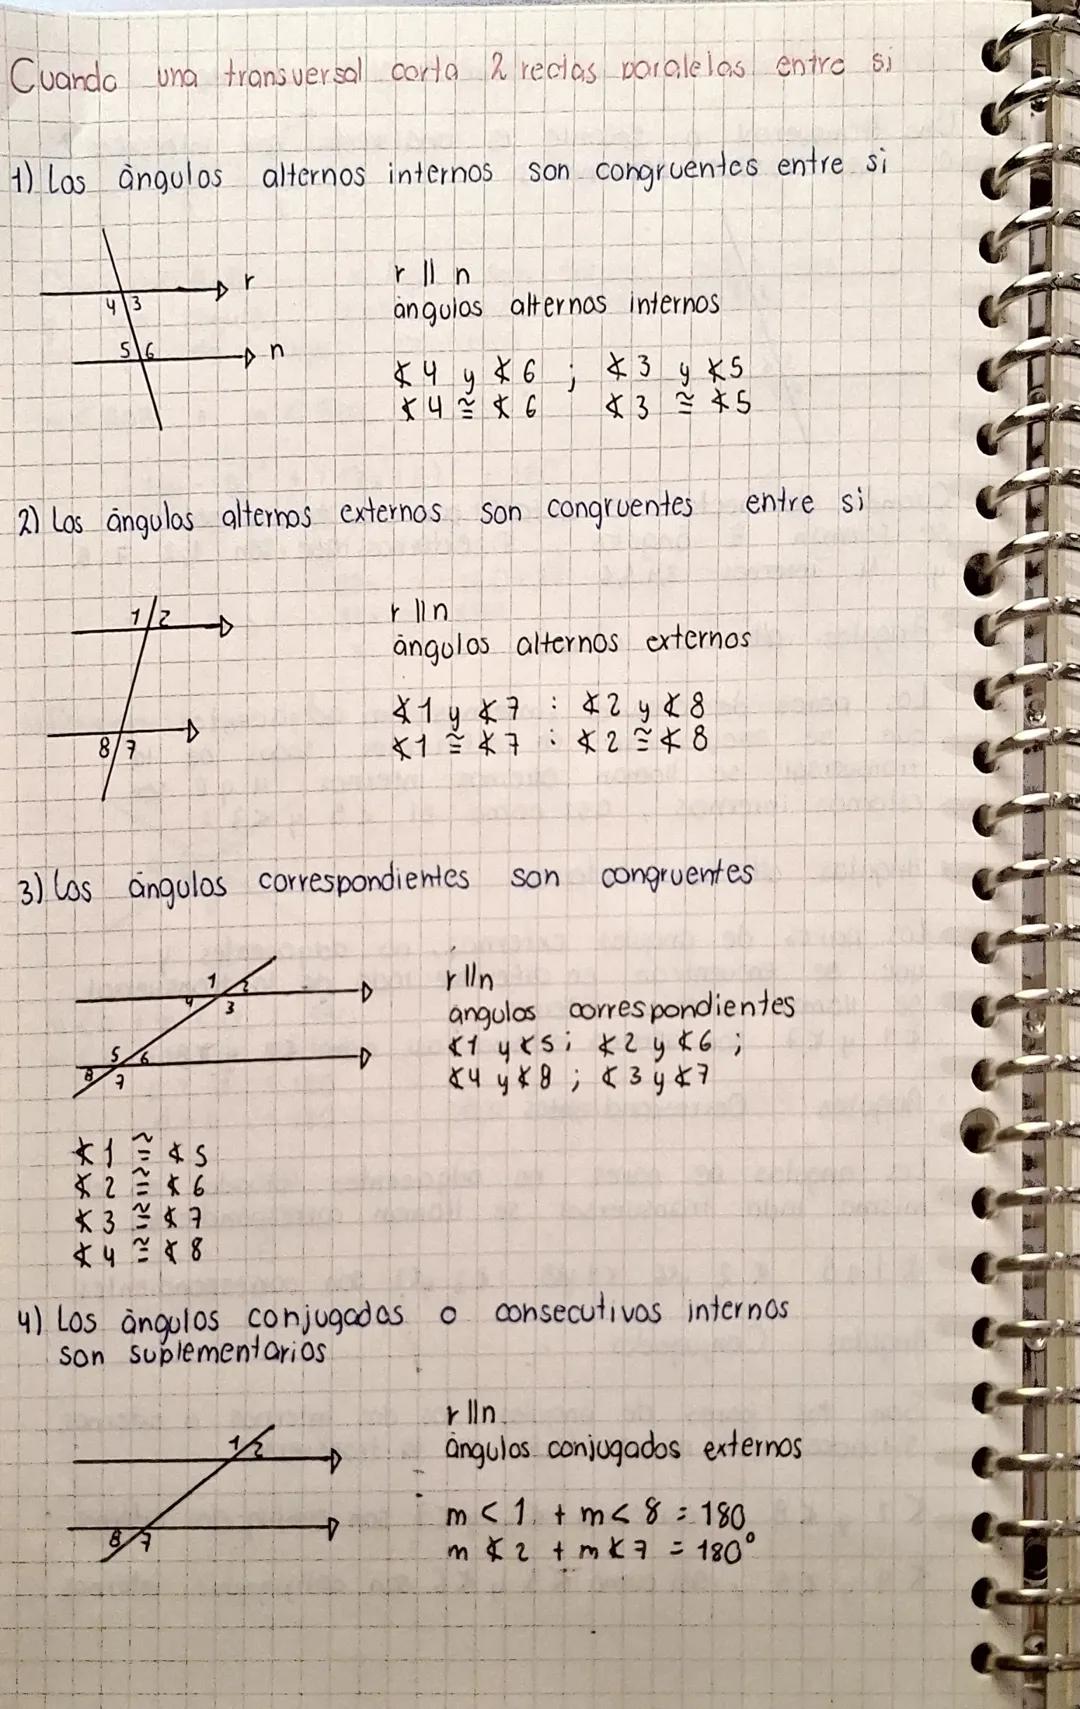 Cuando una transversal corta 2 rectas paralelas entre si
1) Los ángulos alternos internos son congruentes entre si
r
4 3
5 6
n
r || n
ángulos alternos internos
∢4 y ∢6 ; ∢3 y ∢5
∢4 ≅ ∢6 ∢3 ≅ ∢5
2) Los ángulos alternos externos son congruentes entre si
1 2
8 7
r ||n
ángulos alternos externos
∢1 y ∢7 : ∢2 y ∢8
∢1 ≅ ∢7 : ∢2 ≅ ∢8
3) Los ángulos correspondientes son congruentes
1 2
4 3
5 6
8 7
r ||n
ángulos correspondientes
∢1 y ∢5; ∢2 y ∢6 ;
∢4 y ∢8 ; ∢3 y ∢7
∢1 ≅ ∢5
∢2 ≅ ∢6
∢3 ≅ ∢7
∢4 ≅ ∢8
4) Los ángulos conjugados o consecutivos internos
son suplementarios
1 2
8 7
r ||n
ángulos conjugados externos
m < 1 + m < 8 = 180
m ∢ 2 + m ∢ 7 = 180°